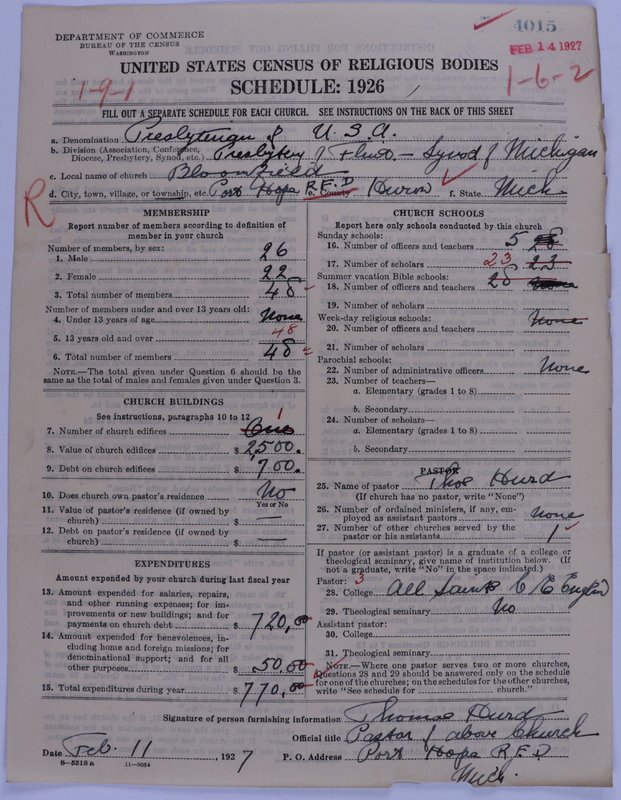 4015
DEPARTMENT OF COMMERCE
BUREAU OF THE CENSUS
WASHINGTON
FEB 14 1927
UNITED STATES CENSUS OF RELIGIOUS BODIES
SCHEDULE: 1926
1-9-1
1-6-2
FILL OUT A SEPARATE SCHEDULE FOR EACH CHURCH. SEE INSTRUCTIONS ON THE BACK OF THIS SHEET
a. Denomination Presbyterian U.S.A.
b. Division (Association, Conference, Diocese, Presbytery, Synod, etc.) Presbytery of Flint — Synod of Michigan
c. Local name of church Bloomfield
d. City, town, village, or township, etc. Port Hope R.F.D e. County Huron f. State Mich
R
MEMBERSHIP
Report number of members according to definition of
member in your church
Number of members, by sex:
1. Male 26
2. Female 22
3. Total number of members 48
Number of members under and over 13 years old:
4. Under 13 years of age None
5. 13 years old and over 48
6. Total number of members 48
NOTE.—The total given under Question 6 should be
same as the total of males and females given under Question 3.
CHURCH BUILDINGS
See instructions, paragraphs 10 to 12
7. Number of church edifices One 1
8. Value of church edifices $ 2,500.
9. Debt on church edifices $ 700.
10. Does church own pastor's residence No
Yes or No
11. Value of pastor's residence (if owned by
church) $ —
12. Debt on pastor's residence (if owned by
church) $ —
EXPENDITURES
Amount expended by your church during last fiscal year
13. Amount expended for salaries, repairs,
and other running expenses; for im-
provements or new buildings; and for
payments on church debt $ 720,00
14. Amount expended for benevolences, in-
cluding home and foreign missions; for
denominational support; and for all
other purposes $ 50 00
15. Total expenditures during year $ 770,00
CHURCH SCHOOLS
Report here only schools conducted by this church
Sunday schools:
16. Number of officers and teachers 5
17. Number of scholars 23 23
Summer vacation Bible schools: 28
18. Number of officers and teachers None
19. Number of scholars
Week-day religious schools: None
20. Number of officers and teachers
21. Number of scholars
Parochial schools:
22. Number of administrative officers None
23. Number of teachers—
a. Elementary (grades 1 to 8)
b. Secondary
24. Number of scholars—
a. Elementary (grades 1 to 8)
b. Secondary
PASTOR
25. Name of pastor Thos Hurd
(If church has no pastor, write "None")
26. Number of ordained ministers, if any, em-
ployed as assistant pastors None
27. Number of other churches served by the
pastor or his assistants 1
If pastor (or assistant pastor) is a graduate of a college or
theological seminary, give name of institution below. (If
not a graduate, write "No" in the space indicated.)
Pastor: 3
28. College All Saints
29. Theological seminary No
Assistant pastor:
30. College
31. Theological seminary
NOTE.—Where one pastor serves two or more churches,
Questions 28 and 29 should be answered only on the schedule
for one of the churches; on the schedules for the other churches,
write "See schedule for church."
Signature of person furnishing information Thomas Hurd
Official title Pastor of above Church
Date Feb. 11 1927 P. O. Address Port Hope R.F.D
Mich.
8-5518 a 11-9054